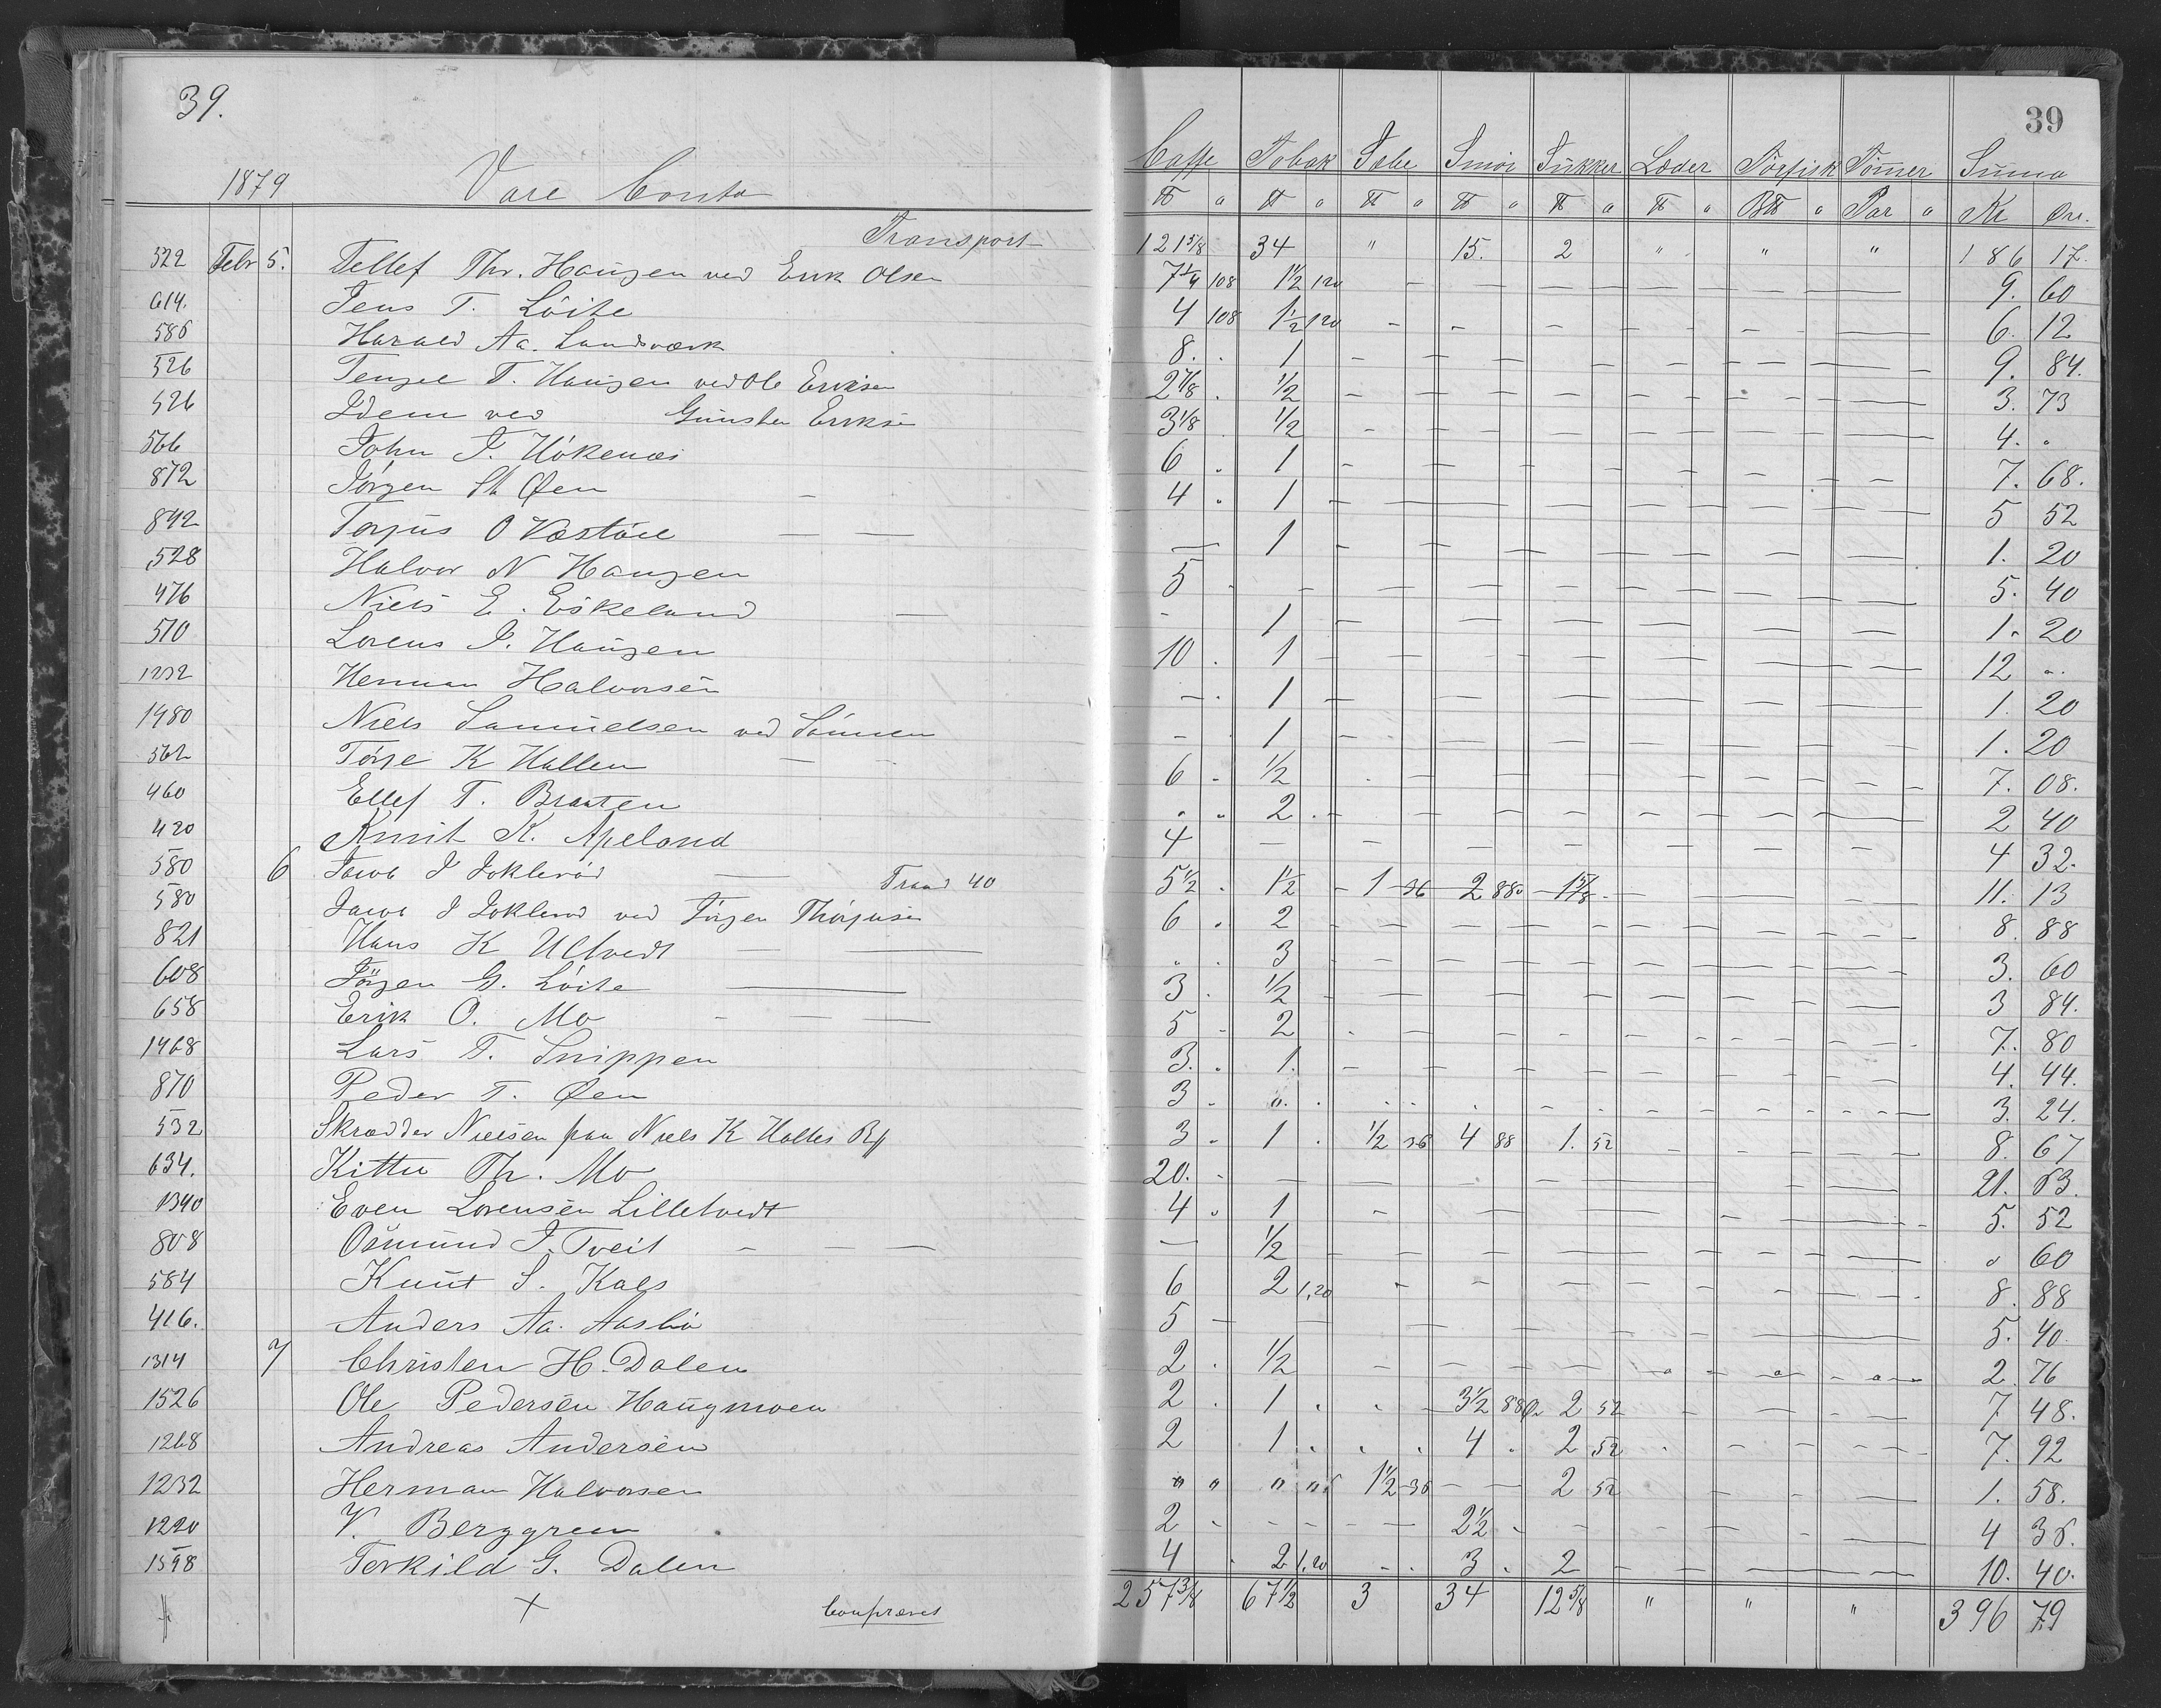 39.
39
1879 Vare Conto
Caffe Tobak Sæbe Smör Sukker Læder Törfisk Tömmer Summa
℔ a ℔ a ℔ a ℔ a ℔ a ℔ a B℔ a Par a Kr Øre.
Transport 121 5/8 34 " 15. 2 " " " 186 17.
522 Febr 5. Tellef Thr. Haugen ved Erik Olsen 7 1/4 108 1 1/2 120 9. 60
614. Jens T. Löite 4 108 1 1/2 120 6. 12
586 Harald Aa. Landsværk 8. 1 9. 84.
526 T. Haugen ved Ole Eriksen 2 7/8 1/2 3. 73
526 Idem ved Gunster Eriksen 3 1/8 1/2 4. "
566 John J. Hökenæs 6 1 7. 68.
872 Jörgen St Øen 4 1 5 52
892 Torjus O Væstöel 1 1. 20
528 Halvor N Haugen 5 5. 40
476 Niels E. Eskeland 1 1. 20
510 Lorens J. Haugen 10 1 12 "
1232 Herman Halvorsen 1 1. 20
1480 Niels Samuelsen ved Sönnen 1 1. 20
562 K Hallen 6 1/2 7. 08.
460 Ellef T. Braaten 2 2 40
420 Knut K. Apeland 4 4 32.
580 6 Jacob J Joklerød Traad 40 5 1/2 1 1/2 1 36 2 88 1 5/8 11. 13
580 Jacob J Joklerød ved Jörgen Thorjusen 6 2 8. 88
821 Hans K Ulltvedt 3 3. 60
608 Jörgen G. Löite 3 1/2 3 84.
658 Erik O. Mo 5 2 7. 80
1468 Lars T. Snippen 3. 1. 4. 44.
870 Peder T. Øen 3 " 3. 24.
532 Skrædder Nielsen paa Niels K Holtes Rg 3 1 1/2 36 4 88 1. 52 8. 67
634. Th. Mo 20. 21. 63.
1340 Even Lorensen Lilletvedt 4 1 5. 52
808 Osmund J. Tveit 1/2 " 60
584 Knut S. Kaas 6 2 1,20 8. 88
416. Anders Aa. Aasbö 5 5. 40
1314 7 Christen H. Dalen 2 1/2 2. 76
1526 Ole Pedersen Haugmoen 2 1 3 1/2 88 2 52 7 48.
1268 Andreas Andersen 2 1 4 2 52 7. 92
1232 Herman Halvorsen " " " " 1 1/2 36 2 52 1. 58.
1220 V. Berggreen 2 2 1/2 4 36.
1598 Terkild G. Dalen 4 2 1,20 3 2 10. 40.
257 3/8 67 1/2 3 34 12 5/8 " " " 396 79
Confereret